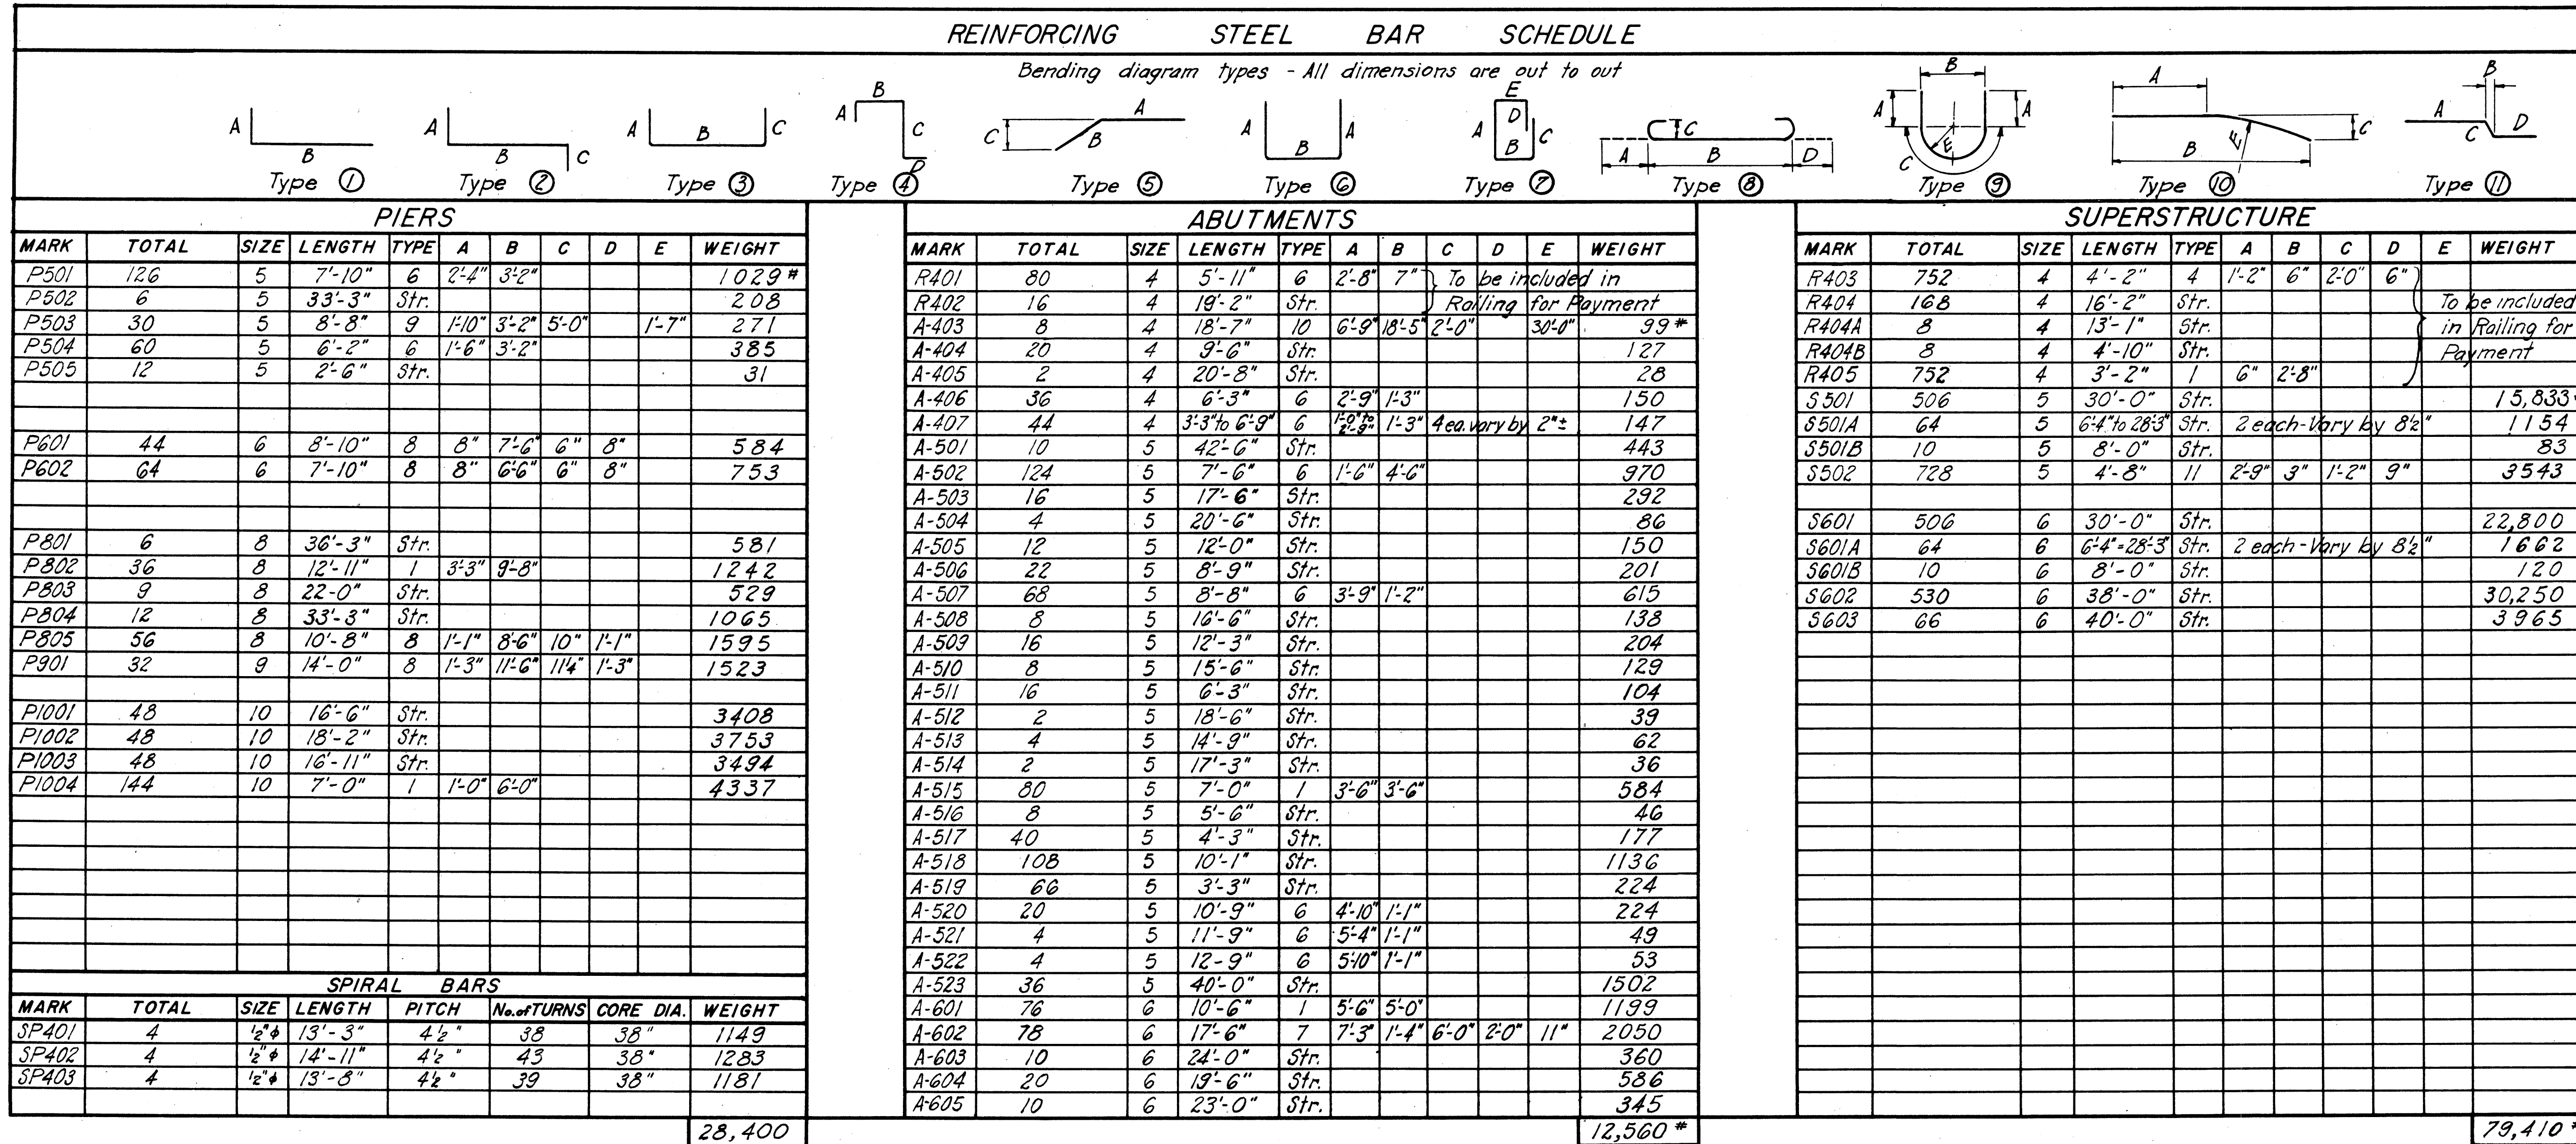 REINFORCING STEEL BAR SCHEDULE
Bending diagram types - All dimensions are out to out
A B Type ①
A B C Type ②
A B C Type ③
A B C D Type ④
C B A Type ⑤
A B A Type ⑥
A E D B C Type ⑦
A B C D Type ⑧
B A A C E Type ⑨
A B C E Type ⑩
A B C D Type ⑪
PIERS
MARK TOTAL SIZE LENGTH TYPE A B C D E WEIGHT
P501 126 5 7'-10" 6 2'-4" 3'-2" 1029#
P502 6 5 33'-3" Str. 208
P503 30 5 8'-8" 9 1'-10" 3'-2" 5'-0" 1'-7" 271
P504 60 5 6'-2" 6 1'-6" 3'-2" 385
P505 12 5 2'-6" Str. 31
P601 44 6 8'-10" 8 8" 7'-6" 6" 8" 584
P602 64 6 7'-10" 8 8" 6'-6" 6" 8" 753
P801 6 8 36'-3" Str. 581
P802 36 8 12'-11" 1 3'-3" 9'-8" 1242
P803 9 8 22-0" Str. 529
P804 12 8 33'-3" Str. 1065
P805 56 8 10'-8" 8 1'-1" 8'-6" 10" 1'-1" 1595
P901 32 9 14'-0" 8 1'-3" 11'-6" 11¼" 1'-3" 1523
P1001 48 10 16'-6" Str. 3408
P1002 48 10 18'-2" Str. 3753
P1003 48 10 16'-11" Str. 3494
P1004 144 10 7'-0" 1 1'-0" 6'-0" 4337
SPIRAL BARS
MARK TOTAL SIZE LENGTH PITCH No. of TURNS CORE DIA. WEIGHT
SP401 4 ½"ϕ 13'-3" 4½" 38 38" 1149
SP402 4 ½"ϕ 14'-11" 4½" 43 38" 1283
SP403 4 ½"ϕ 13'-8" 4½" 39 38" 1181
28,400
ABUTMENTS
MARK TOTAL SIZE LENGTH TYPE A B C D E WEIGHT
R401 80 4 5'-11" 6 2'-8" 7" To be included in
R402 16 4 19'-2" Str. Railing for Payment
A-403 8 4 18'-7" 10 6'-9" 18'-5" 2'-0" 30'-0" 99#
A-404 20 4 9'-6" Str. 127
A-405 2 4 20'-8" Str. 28
A-406 36 4 6'-3" 6 2'-9" 1'-3" 150
A-407 44 4 3'-3" to 6'-9" 6 1'-0" to 2'-9" 1'-3" 4 ea. vary by 2"± 147
A-501 10 5 42'-6" Str. 443
A-502 124 5 7'-6" 6 1'-6" 4'-6" 970
A-503 16 5 17'-6" Str. 292
A-504 4 5 20'-6" Str. 86
A-505 12 5 12'-0" Str. 150
A-506 22 5 8'-9" Str. 201
A-507 68 5 8'-8" 6 3'-9" 1'-2" 615
A-508 8 5 16'-6" Str. 138
A-509 16 5 12'-3" Str. 204
A-510 8 5 15'-6" Str. 129
A-511 16 5 6'-3" Str. 104
A-512 2 5 18'-6" Str. 39
A-513 4 5 14'-9" Str. 62
A-514 2 5 17'-3" Str. 36
A-515 80 5 7'-0" 1 3'-6" 3'-6" 584
A-516 8 5 5'-6" Str. 46
A-517 40 5 4'-3" Str. 177
A-518 108 5 10'-1" Str. 1136
A-519 66 5 3'-3" Str. 224
A-520 20 5 10'-9" 6 4'-10" 1'-1" 224
A-521 4 5 11'-9" 6 5'-4" 1'-1" 49
A-522 4 5 12-9" 6 5'10" 1'-1" 53
A-523 36 5 40'-0" Str. 1502
A-601 76 6 10'-6" 1 5'-6" 5'-0" 1199
A-602 78 6 17'-6" 7 7'-3" 1'-4" 6'-0" 2'-0" 11" 2050
A-603 10 6 24'-0" Str. 360
A-604 20 6 19'-6" Str. 586
A-605 10 6 23'-0" Str. 345
12,560#
SUPERSTRUCTURE
MARK TOTAL SIZE LENGTH TYPE A B C D E WEIGHT
R403 752 4 4'-2" 4 1'-2" 6" 2'-0" 6"
R404 168 4 16'-2" Str. To be included
R404A 8 4 13'-1" Str. in Railing for
R404B 8 4 4'-10" Str. Payment
R405 752 4 3'-2" 1 6" 2'-8"
S501 506 5 30'-0" Str. 15,833
S501A 64 5 6'-4" to 28'-3" Str. 2 each-Vary by 8½" 1154
S501B 10 5 8'-0" Str. 83
S502 728 5 4'-8" 11 2'-9" 3" 1'-2" 9" 3543
S601 506 6 30'-0" Str. 22,800
S601A 64 6 6'-4"=28'-3" Str. 2 each-Vary by 8½" 1662
S601B 10 6 8'-0" Str. 120
S602 530 6 38'-0" Str. 30,250
S603 66 6 40'-0" Str. 3965
79,410